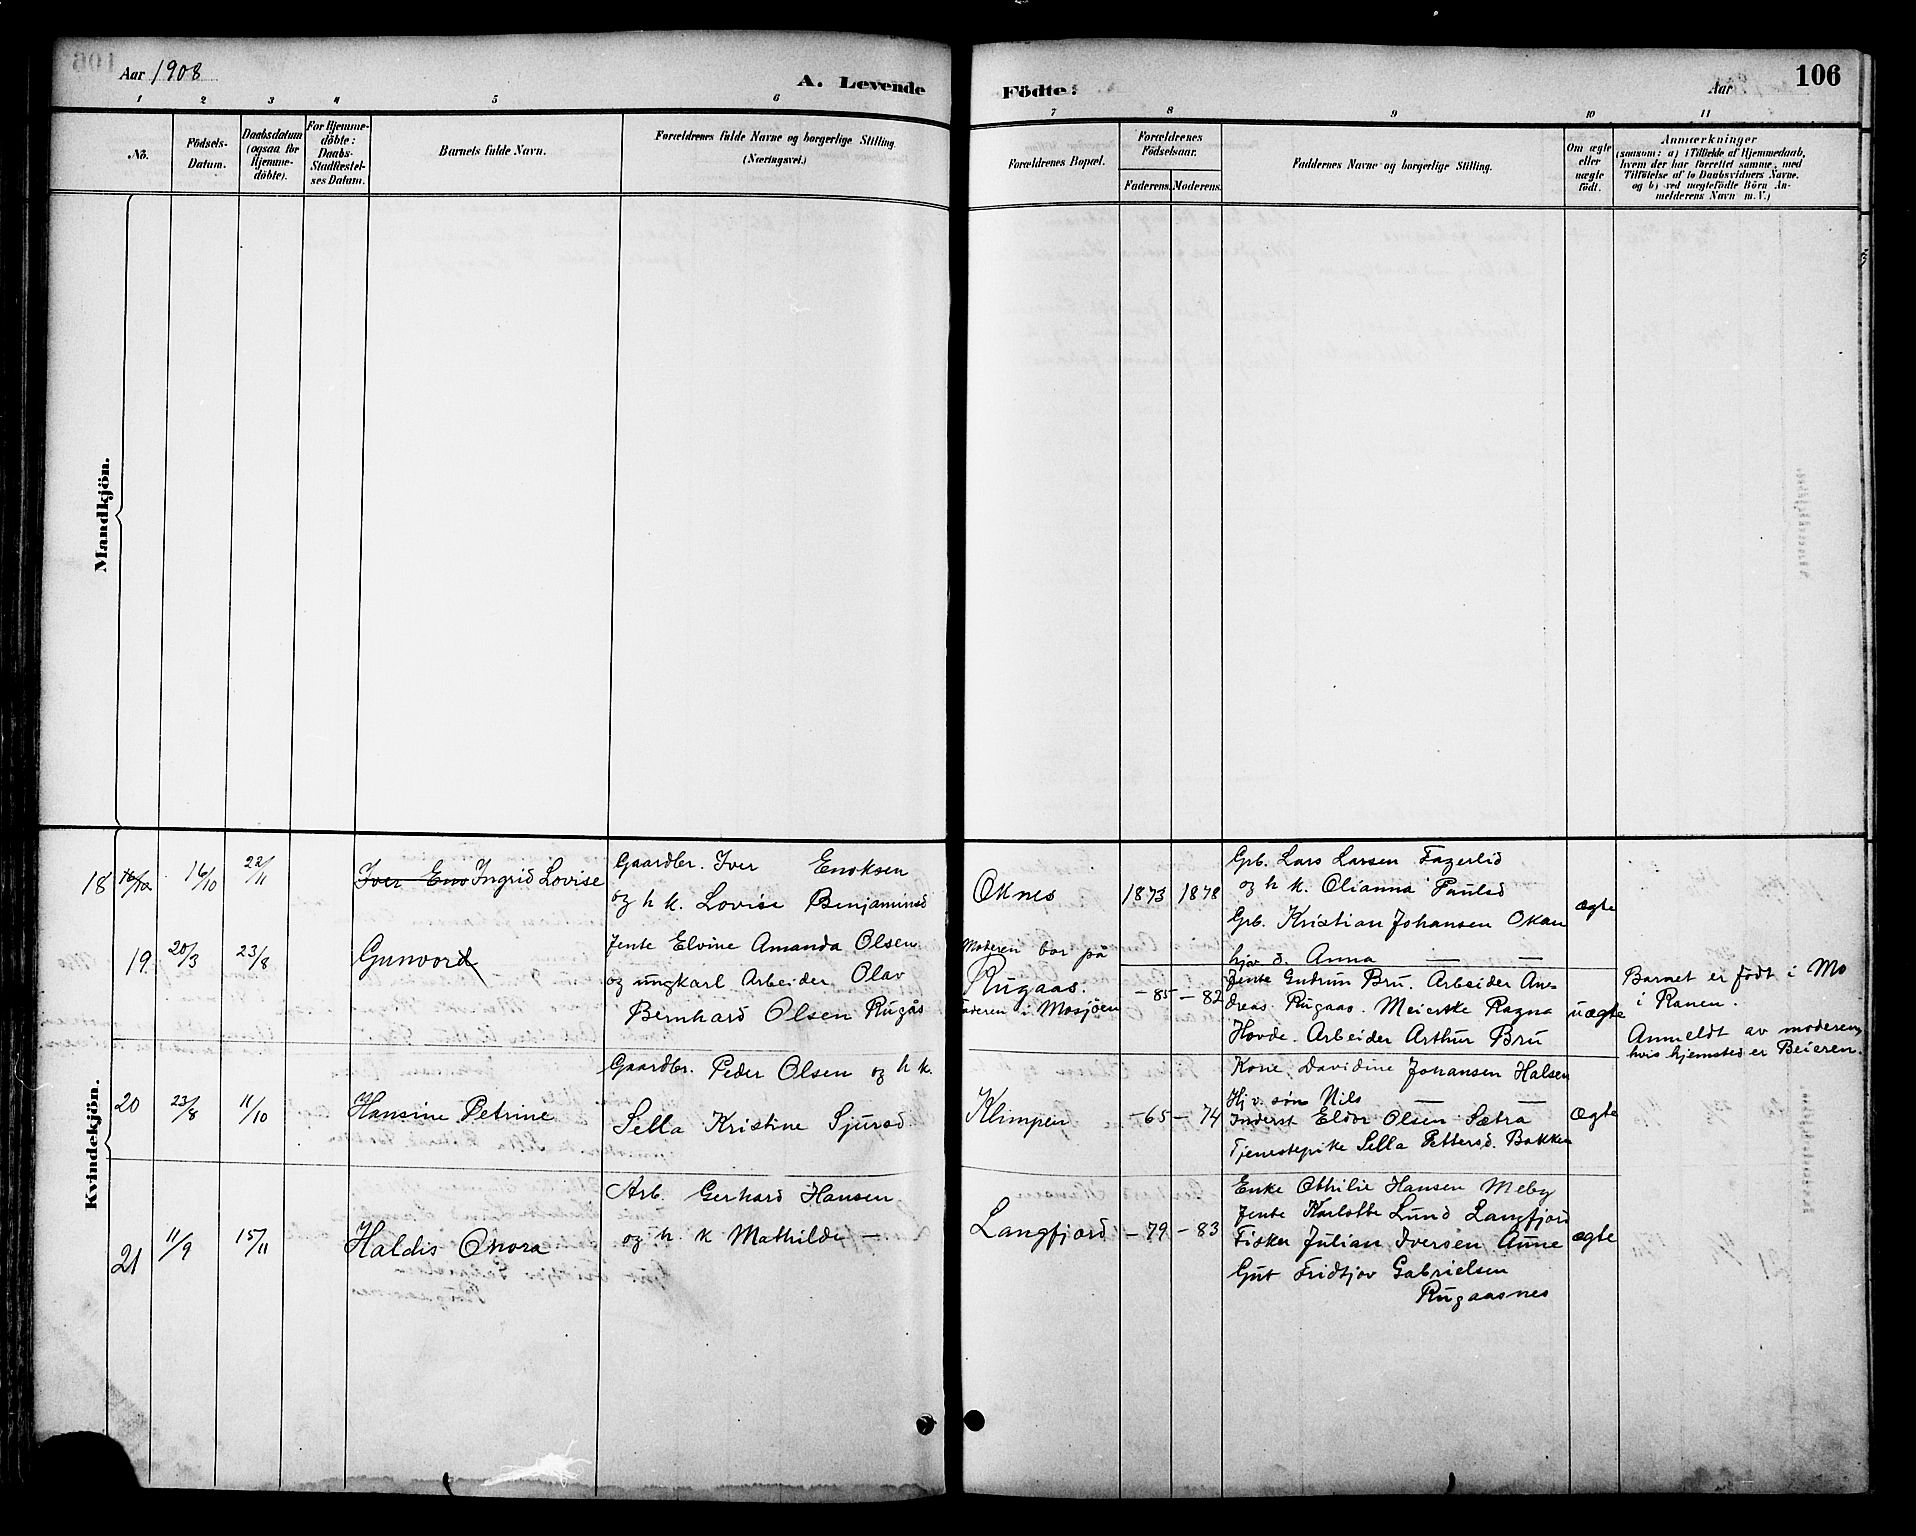 Aar 1908
A. Levende
1 2 3 4 5 6
No.
Födsels-
Datum.
Daabsdatum
(ogsaa for
Hjemme-
döbte).
For Hjemme-
döbte:
Daabs-
Stadfæstel-
ses Datum.
Barnets fulde Navn.
Forældrenes fulde Navne og borgerlige Stilling
(Næringsvei.)
Mandkjön.
Kvindekjön.
18 16/10 16/10 22/11 Iver Eno Ingrid Lovise
Gaardbr. Iver Enoksen
og h k. Lovise Benjaminsd
19 20/3 23/8 Gunvord
Jente Elvine Amanda Olsen
og ungkarl Arbeider Olav
Bernhard Olsen Rugås
20 23/8 11/10 Hansine Petrine
Gaardbr. Peder Olsen og h k.
Sella Kristine Sjursd
21 11/9 15/11 Haldis Onora
Arb. Gerhard Hansen
og h. k Mathilde —
Födte:
Aar 106
7 8 9 10 11
Forældrenes Bopæl.
Forældrenes
Födselsaar.
Faderens. Moderens.
Faddernes Navne og borgerlige Stilling.
Om ægte
eller
uægte
födt.
Anmærkninger
(saasom: a) i Tilfælde af Hjemmedaab,
hvem der har forrettet samme, med
Tilföielse af to Daabsvidners Navne.
og b) ved uægtefödte Börn An-
melderens Navn m. V.)
Oknes 1873 1878
Grb. Lars Larsen Fagerlid
og h k. Olianna Paulsd
Grb. Kristian Johansen Okan
hjv d. Anna — —
ægte
Moderen bor på
Rugaas.
Faderen i Mosjöen
-85 -82
Jente Gudrun Bru. Arbeider An-
dreas Rugaas. Meierske Ragna
Hovde. Arbeider Arthur Bru
uægte
Barnet er födt i Mo
i Ranen.
Anmeldt av moderen,
hvis hjemsted er Beieren.
Klimpen -65 -74
Kone Davidine Johansen Halsen
Hj v. sön Nils — —
Inderst Eldor Olsen Sætra
Tjenestepike Sella Pettersd. Bakken
ægte
Langfjord -79 -83
Enke Othilie Hansen Meby
Jente Karlotte Lund Langfjord
Fisker Julian Iversen Aune
Gut Fridtjov Gabrielsen
Rugaasnes
ægte